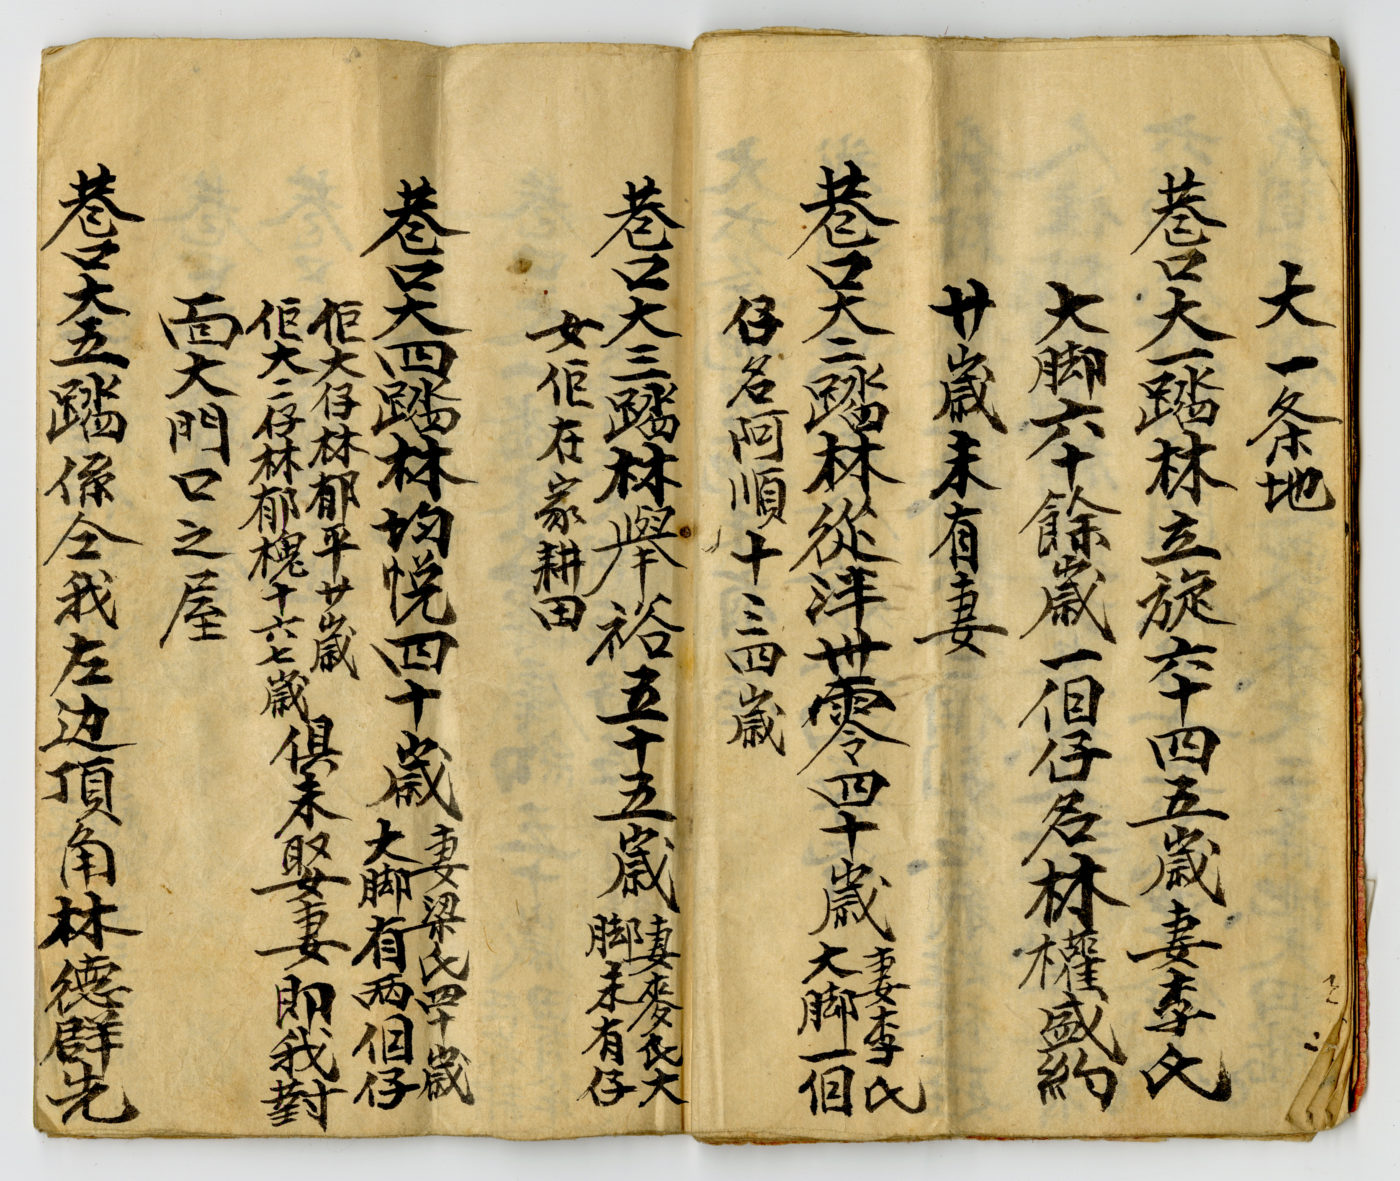 大一条地
巷口大一踏林立旋六十四五歲妻李氏
大脚六十餘歲一個仔名林權盛約
廿歲未有妻
巷口大二踏林從泮卅零四十歲妻李氏大脚一個
仔名阿順十三四歲
巷口大三踏林舉裕五十五歲妻麥氏大脚未有仔
女佢在家耕田
巷口大四踏林均悅四十歲妻梁氏四十歲大脚有両個仔
佢大仔林郁平廿歲
佢大二仔林郁槐十六七歲俱未娶妻即我對
面大門口之屋
巷口大五踏係仝我左边頂角林德群先